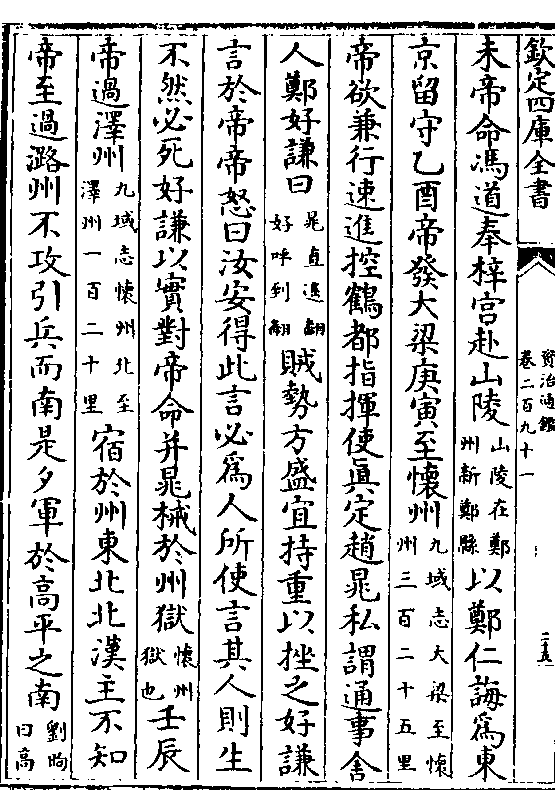 欽定四庫全書
資治通鑑
卷二百九十一
未帝命馮道奉梓宮赴山陵山陵在鄭州新鄭縣以鄭仁誨爲東
京留守乙酉帝發大梁庚寅至懷州九域志大梁至懷州三百二十五里
帝欲兼行速進控鶴都指揮使眞定趙晁私謂通事舍
人鄭好謙曰晁直遙翻好呼到翻賊勢方盛宜持重以挫之好謙
言於帝帝怒曰汝安得此言必爲人所使言其人則生
不然必死好謙以實對帝命并晁械於州獄懷州獄也壬辰
帝過澤州九域志懷州北至澤州一百二十里宿於州東北北漢主不知
帝至過潞州不攻引兵而南是夕軍於高平之南劉昫曰高